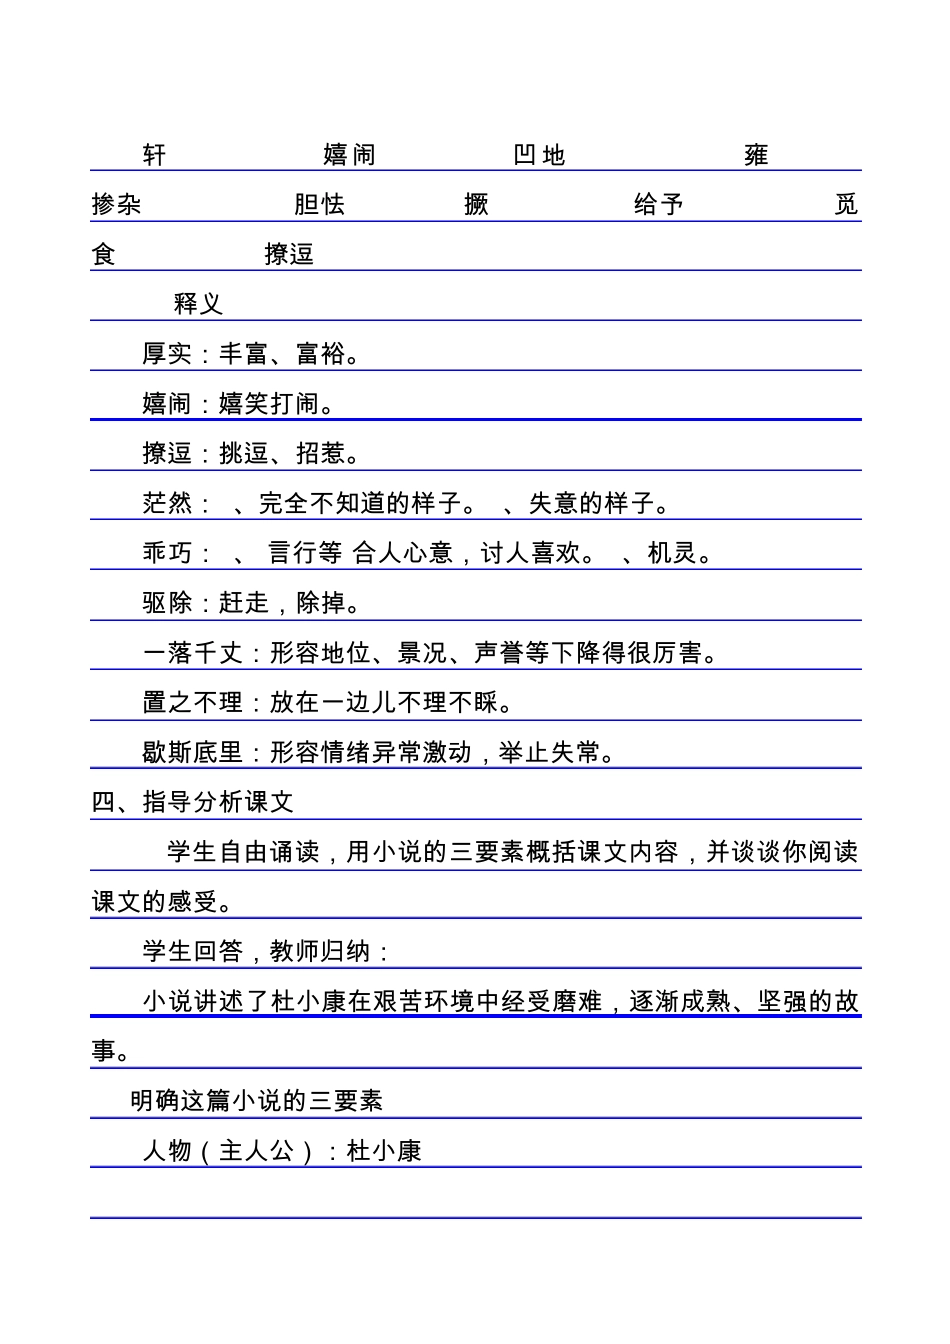 轩 嬉闹 凹地 雍
掺杂 胆怯 撅 给予 觅
食 撩逗
释义
厚实：丰富、富裕。
嬉闹：嬉笑打闹。
撩逗：挑逗、招惹。
茫然： 、完全不知道的样子。 、失意的样子。
乖巧： 、 言行等 合人心意，讨人喜欢。 、机灵。
驱除：赶走，除掉。
一落千丈：形容地位、景况、声誉等下降得很厉害。
置之不理：放在一边儿不理不睬。
歇斯底里：形容情绪异常激动，举止失常。
四、指导分析课文
学生自由诵读，用小说的三要素概括课文内容，并谈谈你阅读
课文的感受。
学生回答，教师归纳：
小说讲述了杜小康在艰苦环境中经受磨难，逐渐成熟、坚强的故
事。
明确这篇小说的三要素
人物（主人公）：杜小康